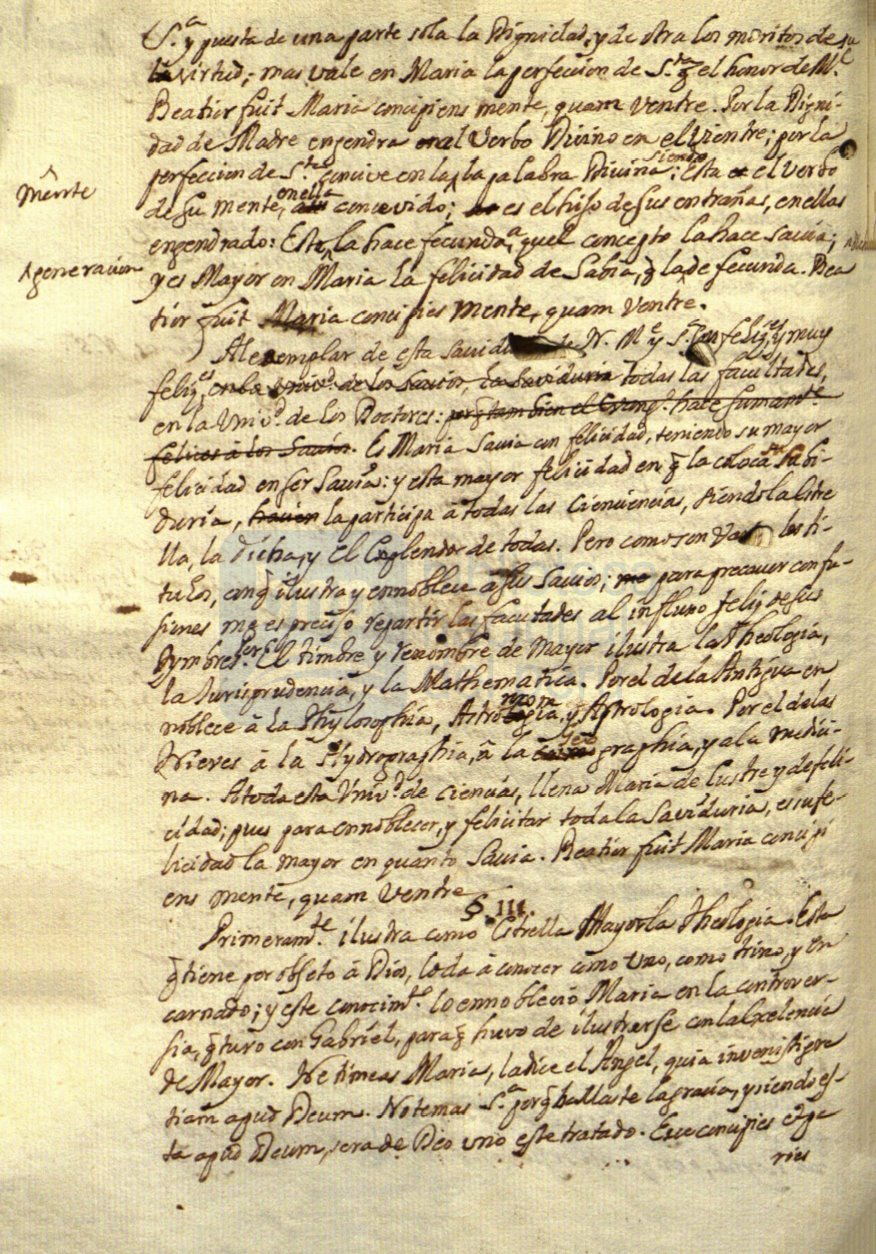 S.ª y puesta de una parte sola la Dignidad, y de otra los meritos de su
virtud; mas vale en Maria la perfeccion de S.ta q̃ el honor de M.e
Beatior fuit Maria concipiens mente, quam ventre. Por la Digni-
dad de Madre engendra al Verbo Divino en el Vientre; por la
perfeccion de S.ta concive en la la palabra Divina: Esta siendo el verbo
de su mente, en ella concevido; es el hijo de sus entrañas, en ellas
engendrado: Esta la hace fecunda, aquel concepto la hace savia;
y es Mayor en Maria la felicidad de Sabia, q̃ la de fecunda. Bea
tior fuit Maria concipies mente, quam ventre.
mente
generacion
Al exemplar de esta de N. M.e y S.ra y muy
felizes en la Univ.d de los Savios, la Saviduria todas las facultades,
en la Univ.d de los Doctores: porq̃ tambien el Evang.o hace sumam.te
felices à los Savios. Es Maria Savia con felicidad, teniendo su mayor
felicidad en ser Savia: y esta mayor felicidad en q̃ la coloca su Sabi-
duria, la participa à todas las Ciencias, siendo la Estre
lla, la Dicha, y el Explendor de todas. Pero como son los ti-
tulos, con q̃ ilustra y ennoblece à sus Savios; para precaver confu-
siones me es preciso repartir las facultades al influxo feliz de sus
tymbres. El timbre y renombre de Mayor ilustra la Theologia,
la Jurisprudencia, y la Mathematica. Por el de la Antigua en
noblece à la Phylosophia, Astronomia, y Astrologia. Por el de las
Nieves à la Hydrographia, à la Geographia, y a la Medici-
na. A toda esta Univ.d de ciencias, llena Maria de lustre y de feli-
cidad; pues para ennoblecer, y felicitar toda la Saviduria, es su fe-
licidad la mayor en quanto Savia. Beatior fuit Maria concipi
ens mente, quam ventre
§. III.
Primeram.te ilustra como Estrella Mayor la Theologia. Esta
q̃ tiene por objeto à Dios, lo da à conocer como Uno, como trino, y en
carnado; y este conocim.to lo ennobleció Maria en la controver-
sia, q̃ tuvo con Gabriel, para q̃ huvo de ilustrarse con la Excelencia
de Mayor. Ne timeas Maria, la dice el Angel, quia invenisti gra
tiam apud Deum. No temas S.ª porq̃ hallaste la gracia, y siendo es-
ta apud Deum, sera de Deo uno este tratado. Ecce concipies et pa
ries